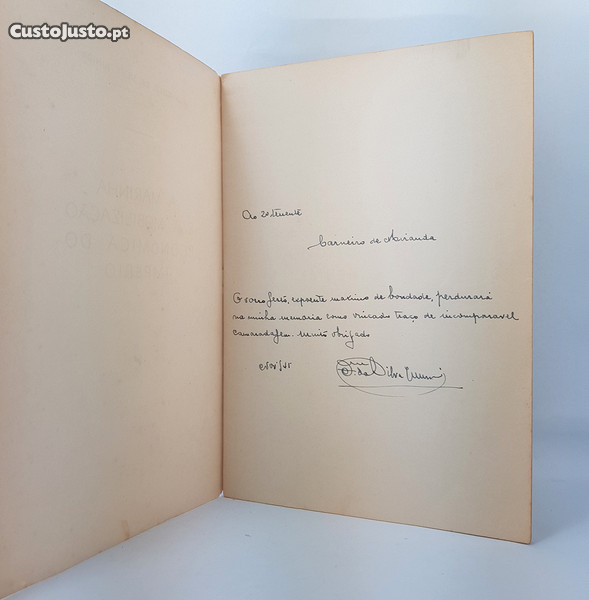 CustoJusto.pt
Ao 2º tenente
Carneiro de Miranda
O vosso gesto, expoente maximo de bondade, perdurará
na minha memoria como vincado traço de incomparavel
camaradagem. Muito obrigado
da Silva